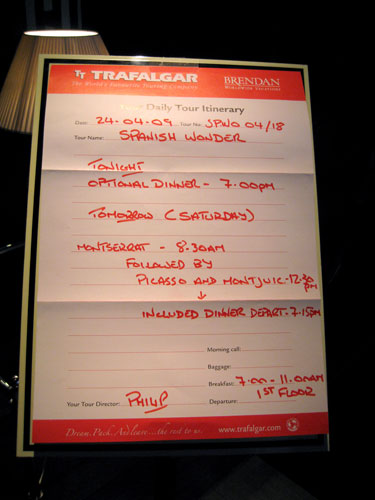 TT TRAFALGAR
The World's Favourite Touring Company
BRENDAN
WORLDWIDE VACATIONS
Your Daily Tour Itinerary
Date: 24.04.09 Tour No: JPWO 04/18
Tour Name: SPANISH WONDER
TONIGHT
OPTIONAL DINNER - 7.00PM
TOMORROW (SATURDAY)
MONTSERRAT - 8.30AM
FOLLOWED BY
PICASSO AND MONTJUIC-12.30
PM
↓
INCLUDED DINNER DEPART-7.15PM
Morning call:
Baggage:
Breakfast: 7.00 - 11.00AM
1ST FLOOR
Your Tour Director: PHILIP Departure:
Dream. Pack. And leave... the rest to us. www.trafalgar.com